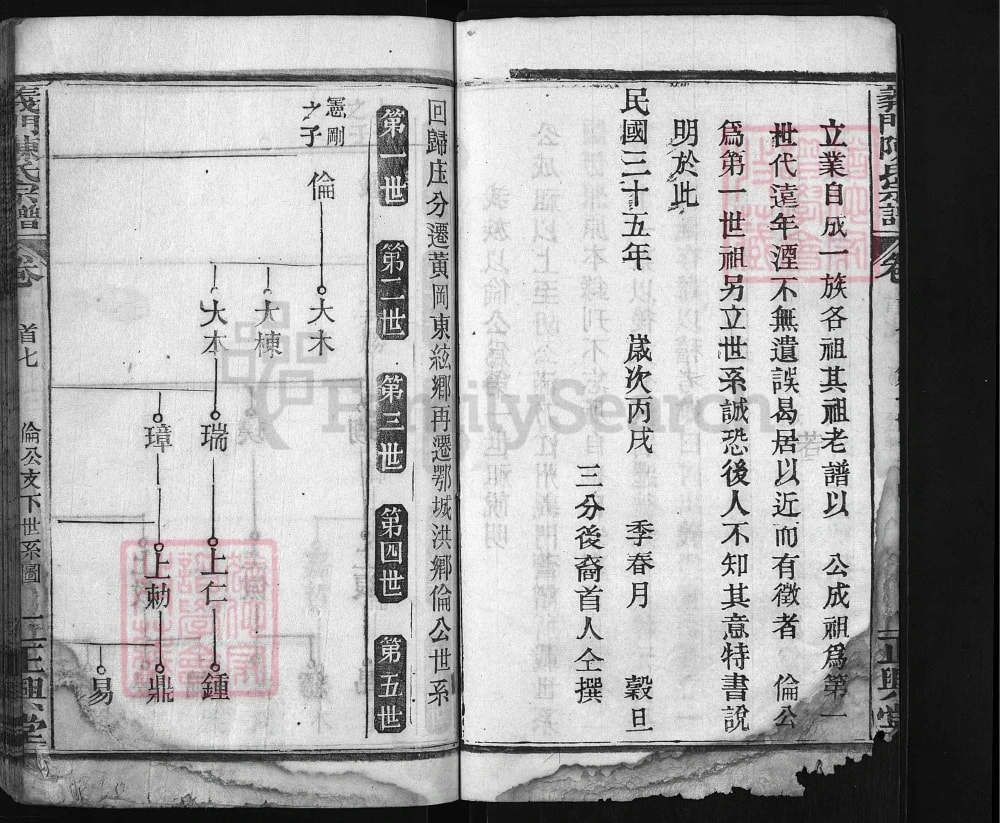 立業自成一族各祖其祖老譜以　公成祖爲第一
世代遠年湮不無遺誤曷居以近而有徵者　倫公
爲第一世祖另立世系誠恐後人不知其意特書說
明於此
民國三十五年　歲次丙戌　季春月　穀旦
三分後裔首人仝撰
回歸庄分遷黃岡東絃鄉再遷鄂城洪鄉倫公世系
第一世　第二世　第三世　第四世　第五世
憲剛
之子
倫
大木
大棟
大本
瑞
璋
上仁
上勑
鍾
鼎
易
義門陳氏宗譜
卷
首七
倫公支下世系圖
正興堂
義門陳氏宗譜
卷
正興堂
FamilySearch